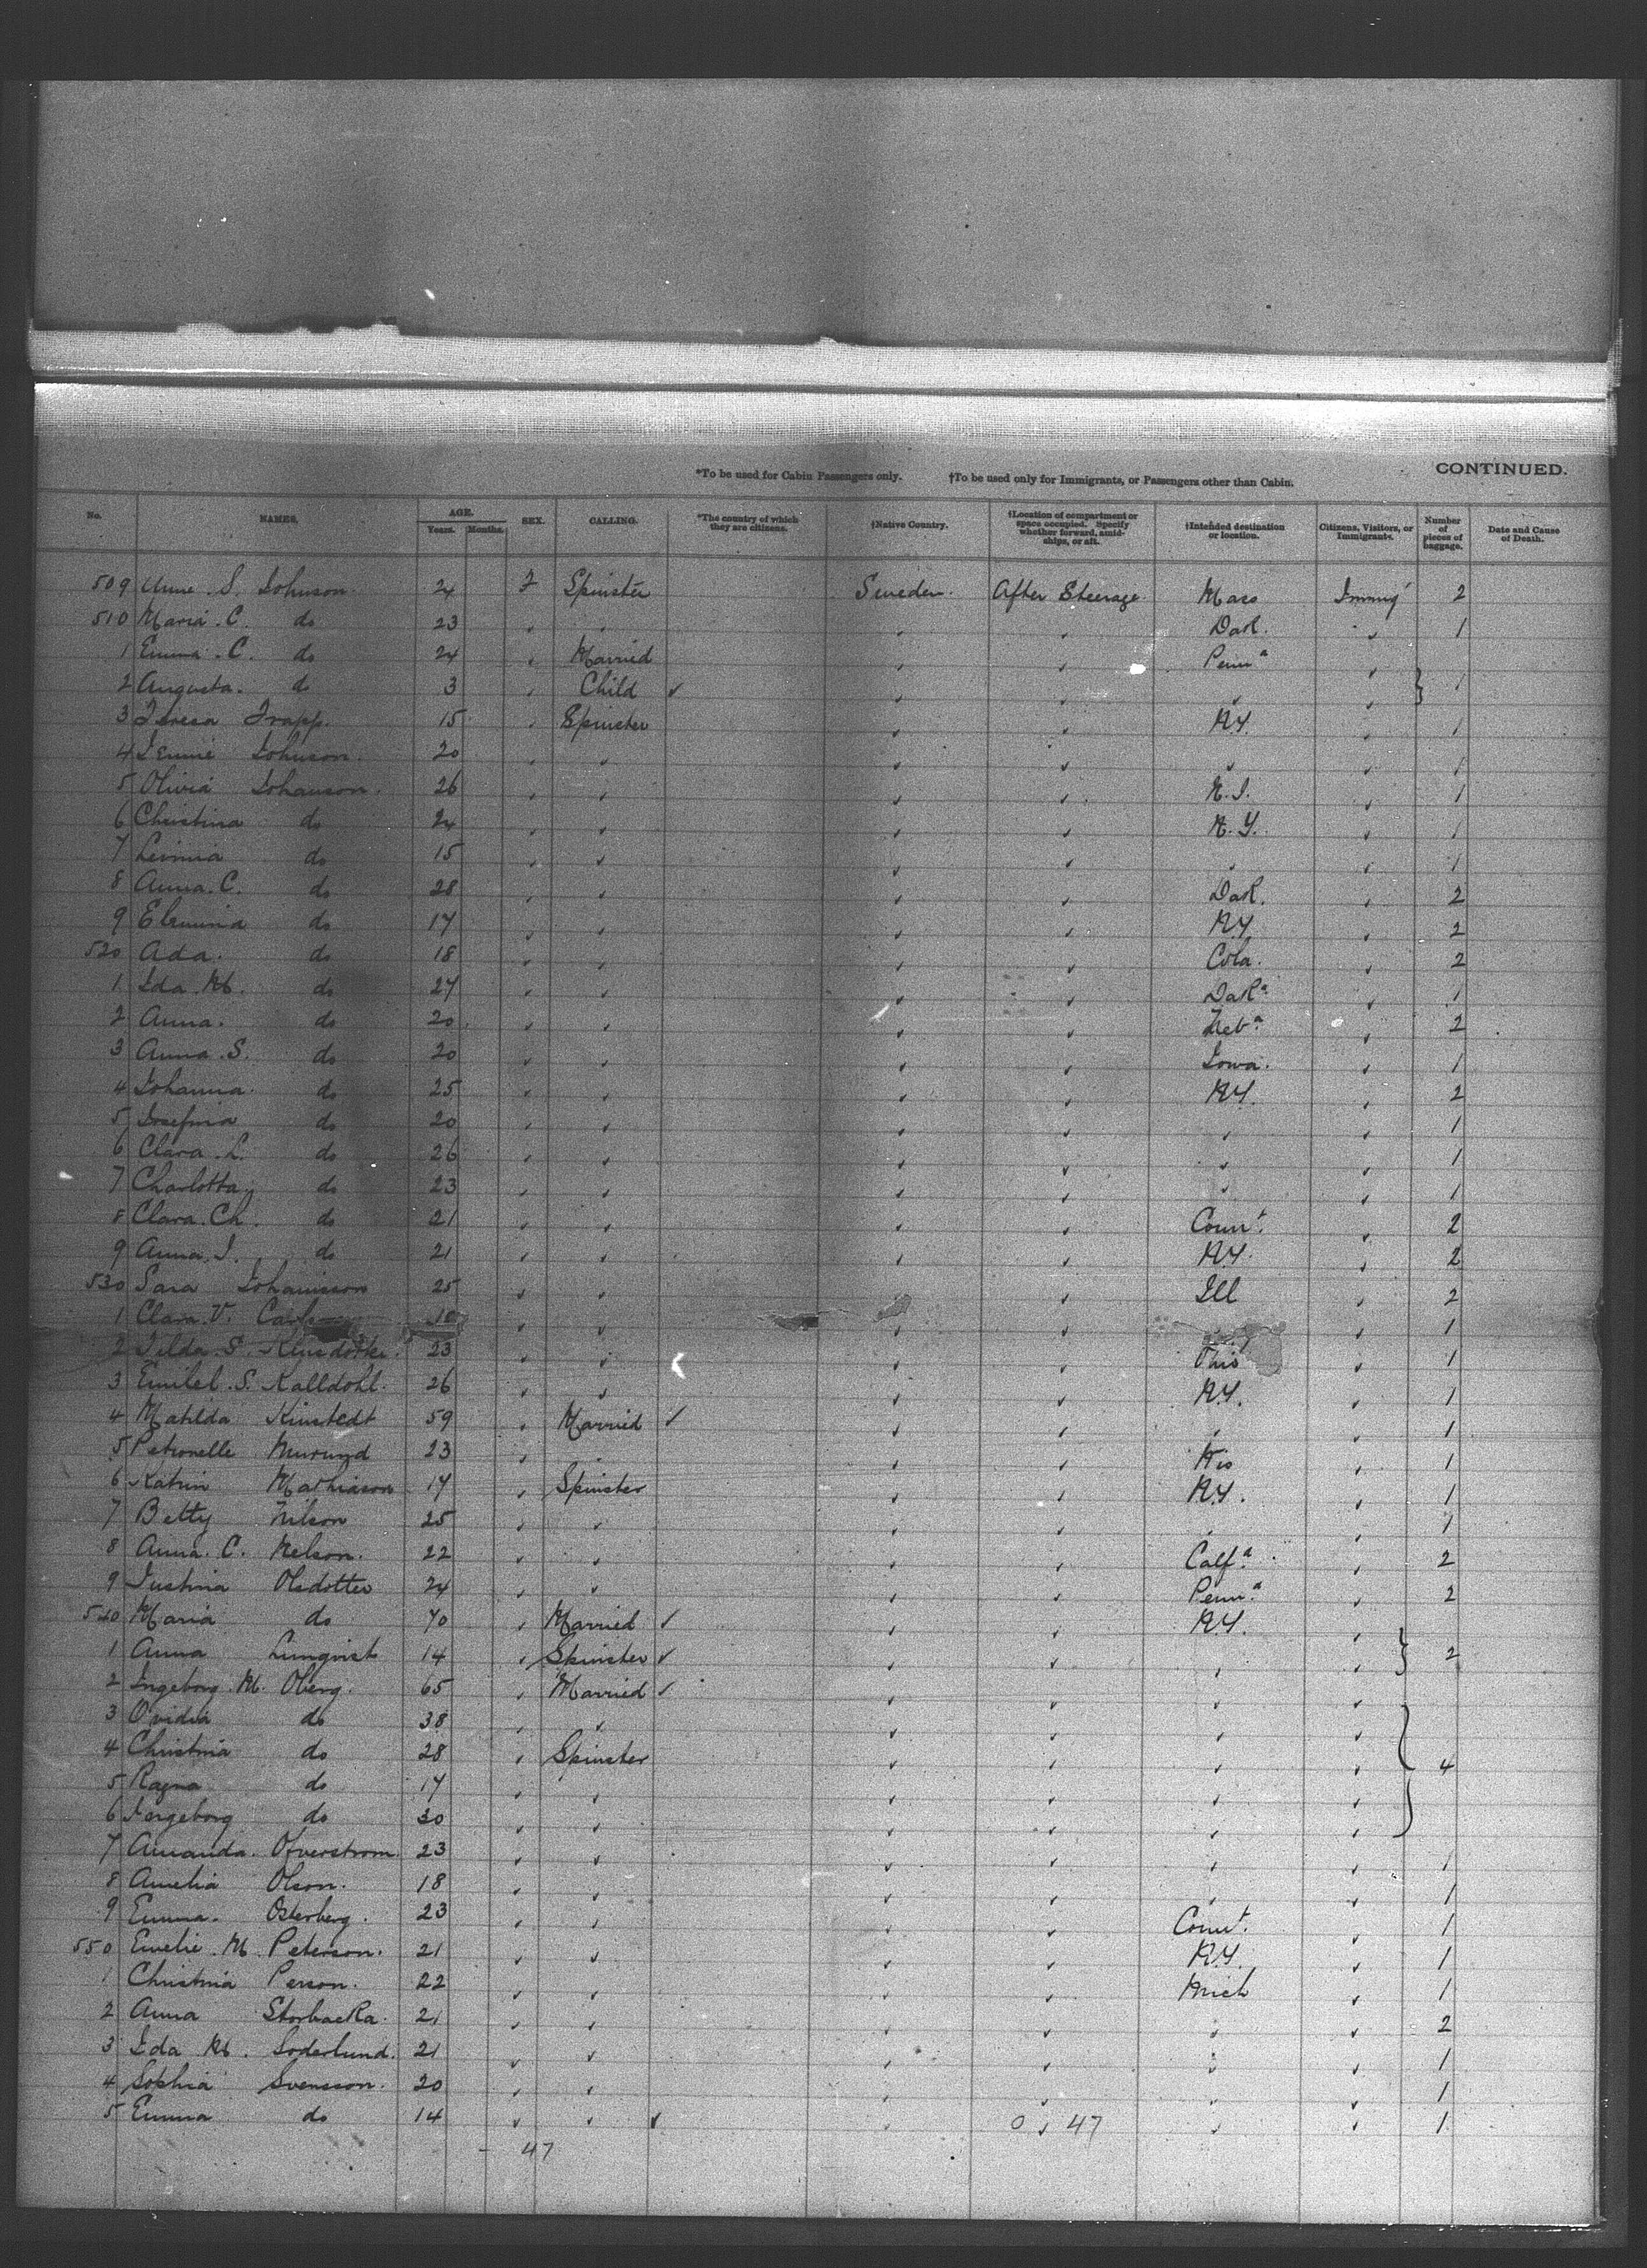 CONTINUED.
*To be used for Cabin Passengers only. †To be used only for Immigrants, or Passengers other than Cabin.
No. NAMES. AGE. Years. Months. SEX. CALLING. *The country of which they are citizens. †Native Country. †Location of compartment or space occupied. Specify whether forward, amidships, or aft. †Intended destination or location. Citizens, Visitors, or Immigrants. Number of pieces of baggage. Date and Cause of Death.
509 Anne. S. Johnson 24 F Spinster Sweden. After Steerage. Mass Immig 2
510 Maria. C. do 23 " " " " Dak. " 1
1 Emma. C. do 24 " Married " " Penna "
2 Augusta. do 3 " Child ✓ " " " " } 1
3 Teresa Trapp. 15 " Spinster " " N.Y. " 1
4 Jennie Johnson. 20 " " " " " " 1
5 Olivia Johanson. 26 " " " " N.J. " 1
6 Christina do 24 " " " " N.Y. " 1
7 do 15 " " " " " " 1
8 Anna. C. do 28 " " " " Dak. " 2
9 do 17 " " " " N.Y. " 2
520 Ada. do 18 " " " " Cola. " 2
1 Ida. M. do 27 " " " " Daka " 1
2 Anna. do 20 " " " " Neba. " 2
3 Anna. S. do 20 " " " " Iowa. " 1
4 Johanna. do 25 " " " " N.Y. " 2
5 Josefina do 20 " " " " " " 1
6 Clara. L. do 26 " " " " " " 1
7 Charlotta do 23 " " " " " " 1
8 Clara. Ch. do 21 " " " " Connt. " 2
9 Anna. J. do 21 " " " " N.Y. " 2
530 Sara Johannsson 25 " " " " Ill " 2
1 Clara. V. " " " " " 1
2 Tilda. S. 23 " " " " Ohio " 1
3 S. Kalldohl. 26 " " " " N.Y. " 1
4 Matilda Kinstedt 59 " Married ✓ " " " " 1
5 Petronelle 23 " " " " Wis " 1
6 Katrin Mathiason 17 " Spinster " " N.Y. " 1
7 Betty Nilson 25 " " " " " " 1
8 Anna. C. Nelson. 22 " " " " Calfa. " 2
9 Justina Olsdotter 24 " " " " Penna. " 2
540 Maria do 70 " Married ✓ " " N.Y. "
1 Anna Lunqvist 14 " Spinster ✓ " " " " } 2
2 Ingeborg. M. Oberg. 65 " Married ✓ " " " "
3 Ovidia do 38 " " " " " "
4 Christina do 28 " Spinster " " " " } 4
5 Ragna do 17 " " " " " "
6 Ingeborg do 30 " " " " " "
7 Amanda. Ofverstrom. 23 " " " " " " 1
8 Amelia Olson. 18 " " " " " " 1
9 Emma. Osterberg. 23 " " " " Connt. " 1
550 Emelie. M. Peterson. 21 " " " " N.Y. " 1
1 Christina Person. 22 " " " " Mich " 1
2 Anna Storbacka. 21 " " " " " " 2
3 Ida M. Soderlund. 21 " " " " " " 1
4 Sophia Svensson. 20 " " " " " " 1
5 Emma do 14 " " ✓ " 0 " 47 " " 1
- 47